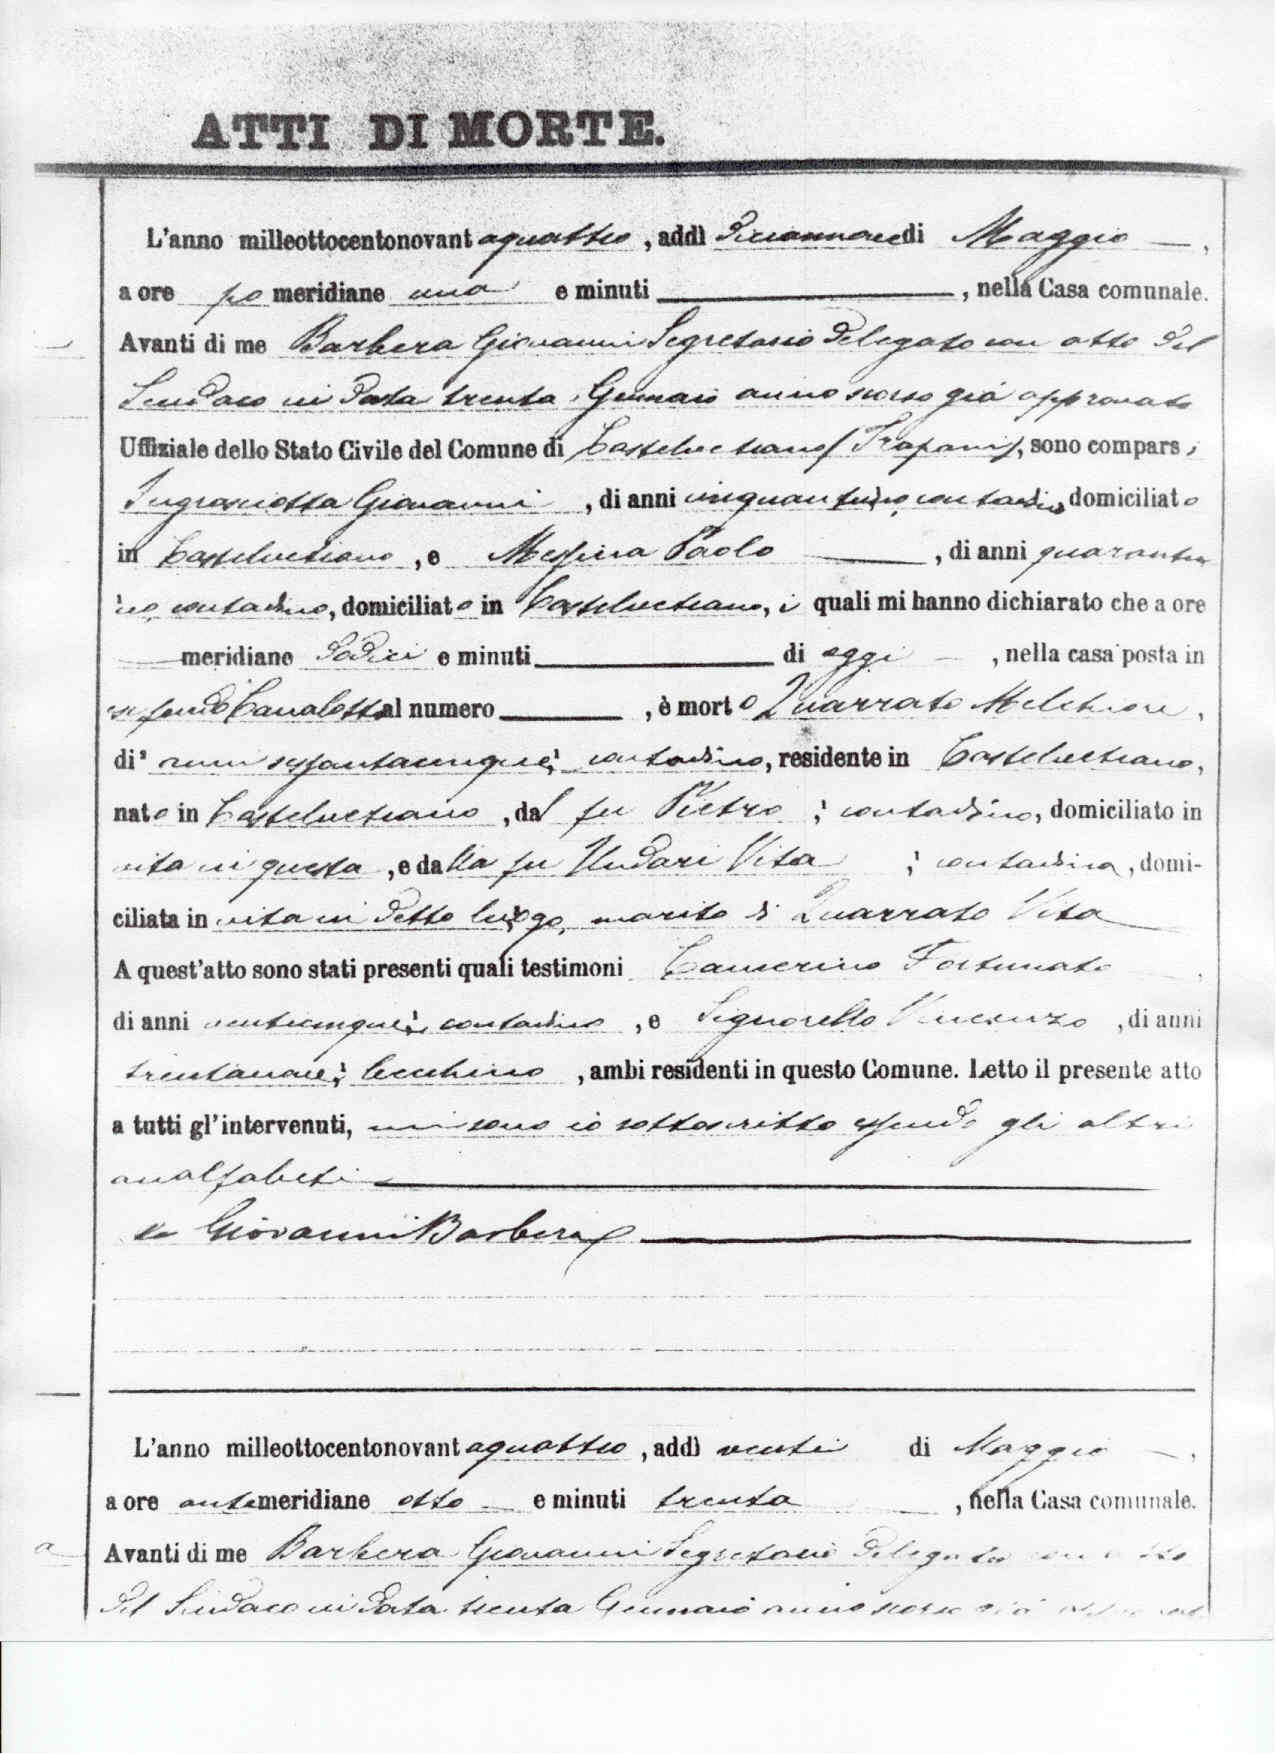 ATTI DI MORTE.
L'anno milleottocentonovantaquattro, addì diciannove di Maggio,
a ore pomeridiane una e minuti, nella Casa comunale.
Avanti di me Barbera Giovanni Segretario Delegato con atto del
Sindaco in data trenta Gennaio anno scorso già approvato
Uffiziale dello Stato Civile del Comune di Castelvetrano (Trapani), sono comparsi
Ingrasciotta Giovanni, di anni contadino, domiciliato
in Castelvetrano, e Messina Paolo, di anni
contadino, domiciliato in Castelvetrano, i quali mi hanno dichiarato che a ore
meridiane dodici e minuti di oggi, nella casa posta in
al numero, è morto Quarrato Melchiore,
di anni sessantacinque, contadino, residente in Castelvetrano,
nato in Castelvetrano, dal fu Pietro, contadino, domiciliato in
vita in questa, e dalla fu Undari Vita, contadina, domi-
ciliata in vita in detto luogo, marito di Quarrato Vita
A quest'atto sono stati presenti quali testimoni Fortunato
di anni venticinque, contadino, e Signorello Vincenzo, di anni
trentanove, ambi residenti in questo Comune. Letto il presente atto
a tutti gl'intervenuti, mi sono io sottoscritto essendo gli altri
analfabeti
Giovanni Barbera
L'anno milleottocentonovantaquattro, addì venti di Maggio,
a ore antemeridiane otto e minuti trenta, nella Casa comunale.
Avanti di me Barbera Giovanni Segretario Delegato con atto
del Sindaco in data trenta Gennaio anno scorso già